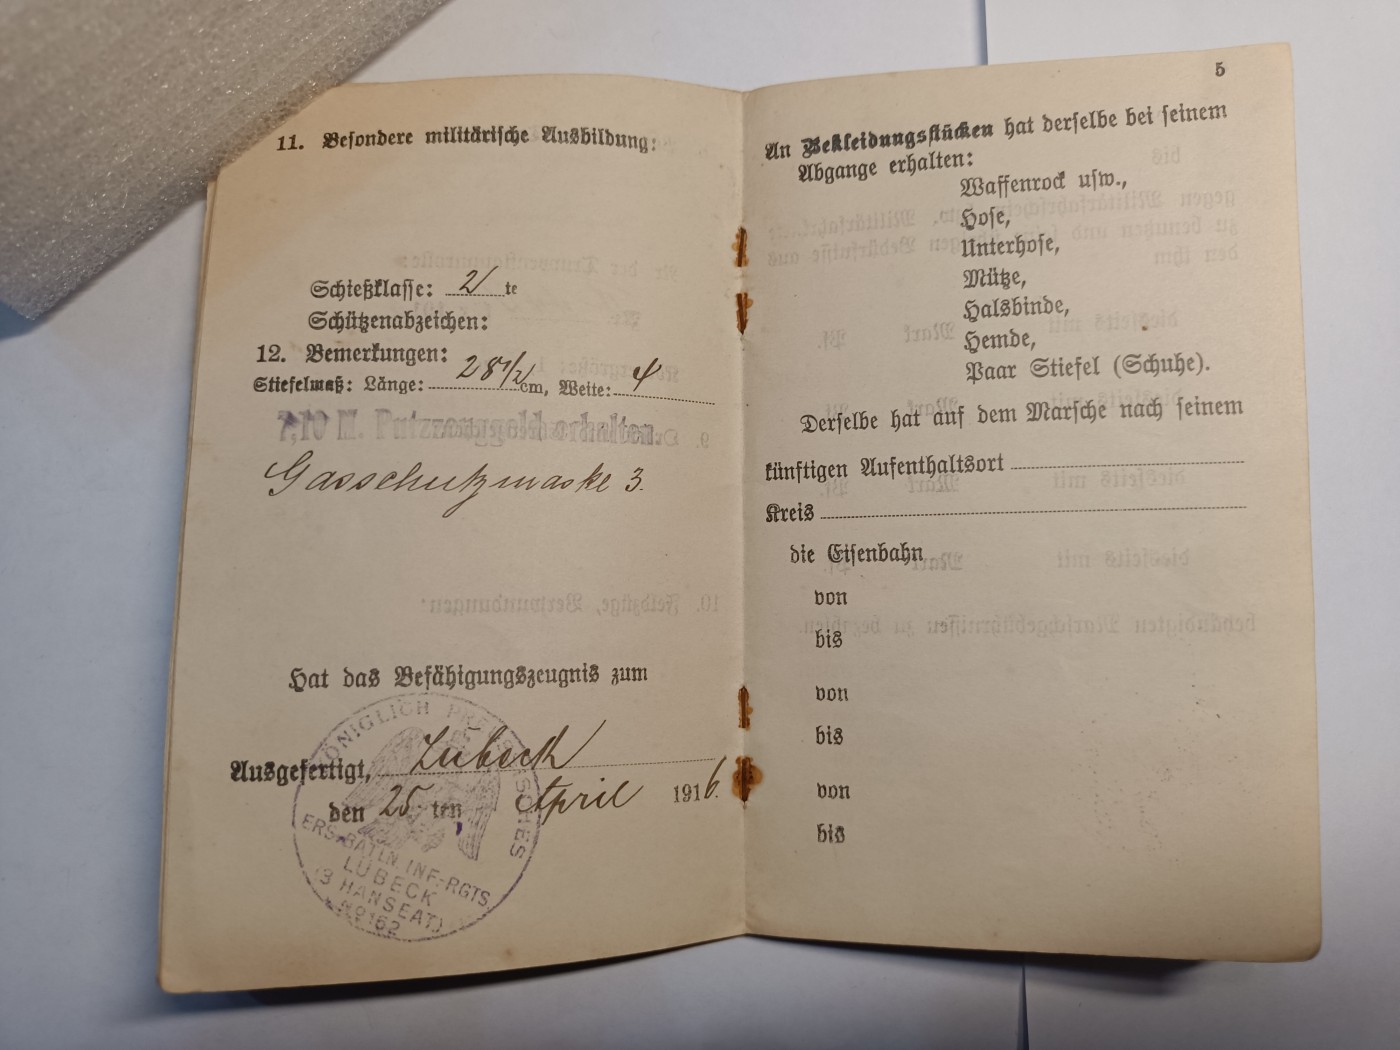 11. Besondere militärische Ausbildung:
Schießklasse: 2 te
Schützenabzeichen:
12. Bemerkungen:
Stiefelmaß: Länge: 28 1/2 cm, Weite: 4
7,10 M. Putzzeuggeld erhalten.
Gasschutzmaske 3.
Hat das Befähigungszeugnis zum
Ausgefertigt, Lübeck
den 25 ten April 1916.
KÖNIGLICH PREUSSISCHES
ERS. BATLN. INF.-RGTS.
LÜBECK
(3 HANSEAT)
No 162
5
An Bekleidungsstücken hat derselbe bei seinem
Abgange erhalten:
Waffenrock usw.,
Hose,
Unterhose,
Mütze,
Halsbinde,
Hemde,
Paar Stiefel (Schuhe).
Derselbe hat auf dem Marsche nach seinem
künftigen Aufenthaltsort
Kreis
die Eisenbahn
von
bis
von
bis
von
bis